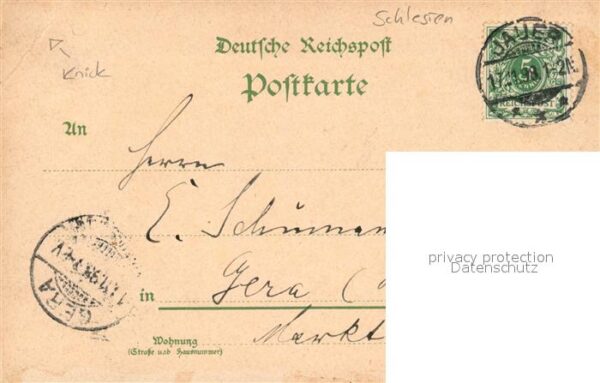 Schlesien
Knick
Deutsche Reichspost
Postkarte
JAUER
5
An
Herrn
E. Schuman
Gera (
GERA
in
Markt
Wohnung
(Straße und Hausnummer)
privacy protection
Datenschutz